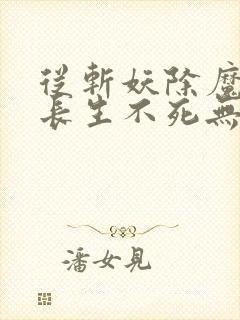 從斬妖除魔
長生不死無
潘女見